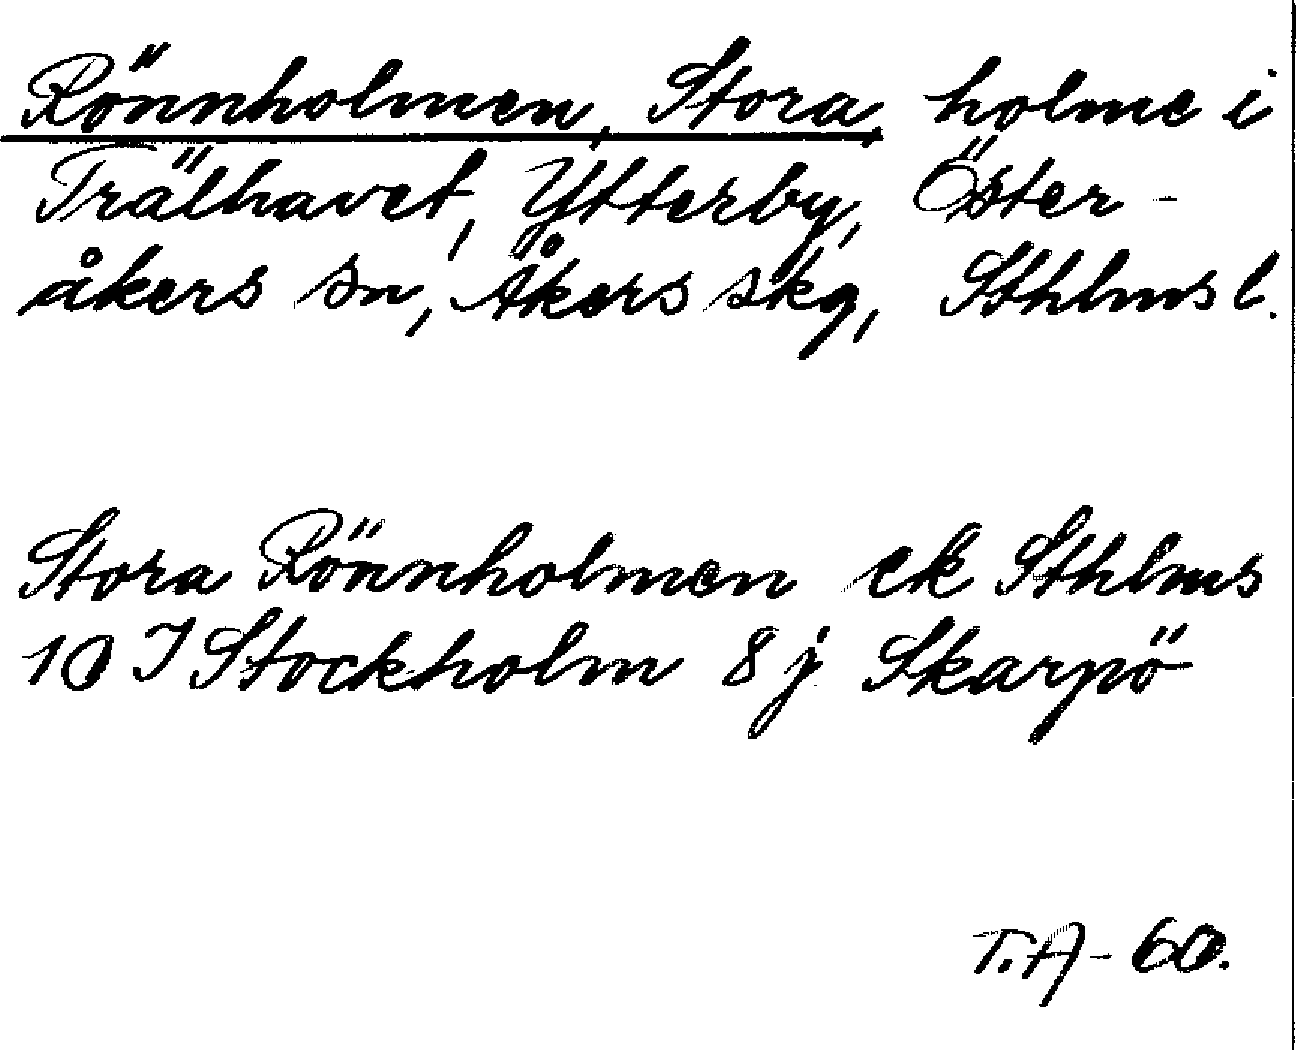 Rönnholmen, Stora, holme i
Trälhavet, Ytterby, Öster-
åkers sn, Åkers skg, Sthlms l.
Stora Rönnholmen ek Sthlms
10 I Stockholm 8 j Skarpö
T.A-60.